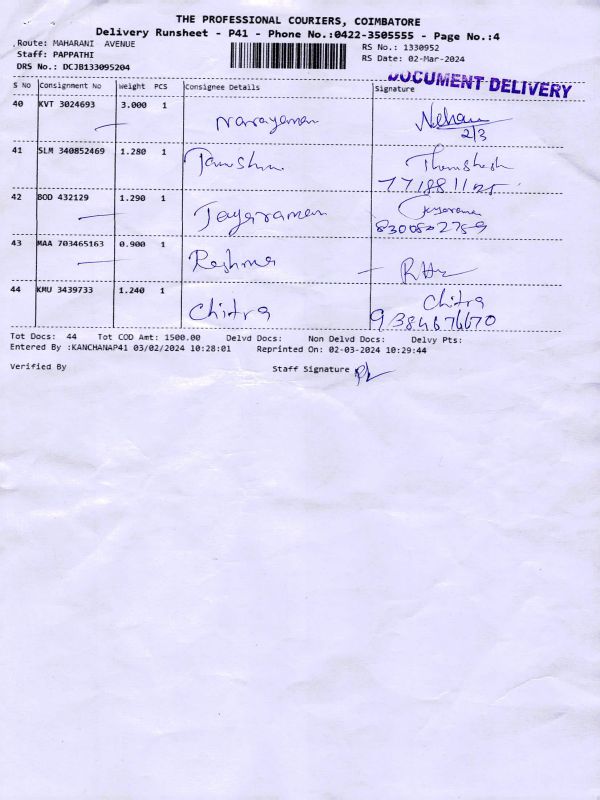 THE PROFESSIONAL COURIERS, COIMBATORE
Delivery Runsheet - P41 - Phone No.:0422-3505555 - Page No.:4
Route: MAHARANI AVENUE
RS No.: 1330952
Staff: PAPPATHI
RS Date: 02-Mar-2024
DRS No.: DCJB133095204
DOCUMENT DELIVERY
S No Consignment No Weight PCS Consignee Details Signature
40 KVT 3024693 3.000 1 Narayanan
2/3
41 SLM 340852469 1.280 1
42 BOD 432129 1.290 1 Jayaraman
8300502759
43 MAA 703465163 0.900 1 Reshma
44 KMU 3439733 1.240 1 Chitra Chitra
9384676670
Tot Docs: 44 Tot COD Amt: 1500.00 Delvd Docs: Non Delvd Docs: Delvy Pts:
Entered By :KANCHANAP41 03/02/2024 10:28:01 Reprinted On: 02-03-2024 10:29:44
Verified By Staff Signature